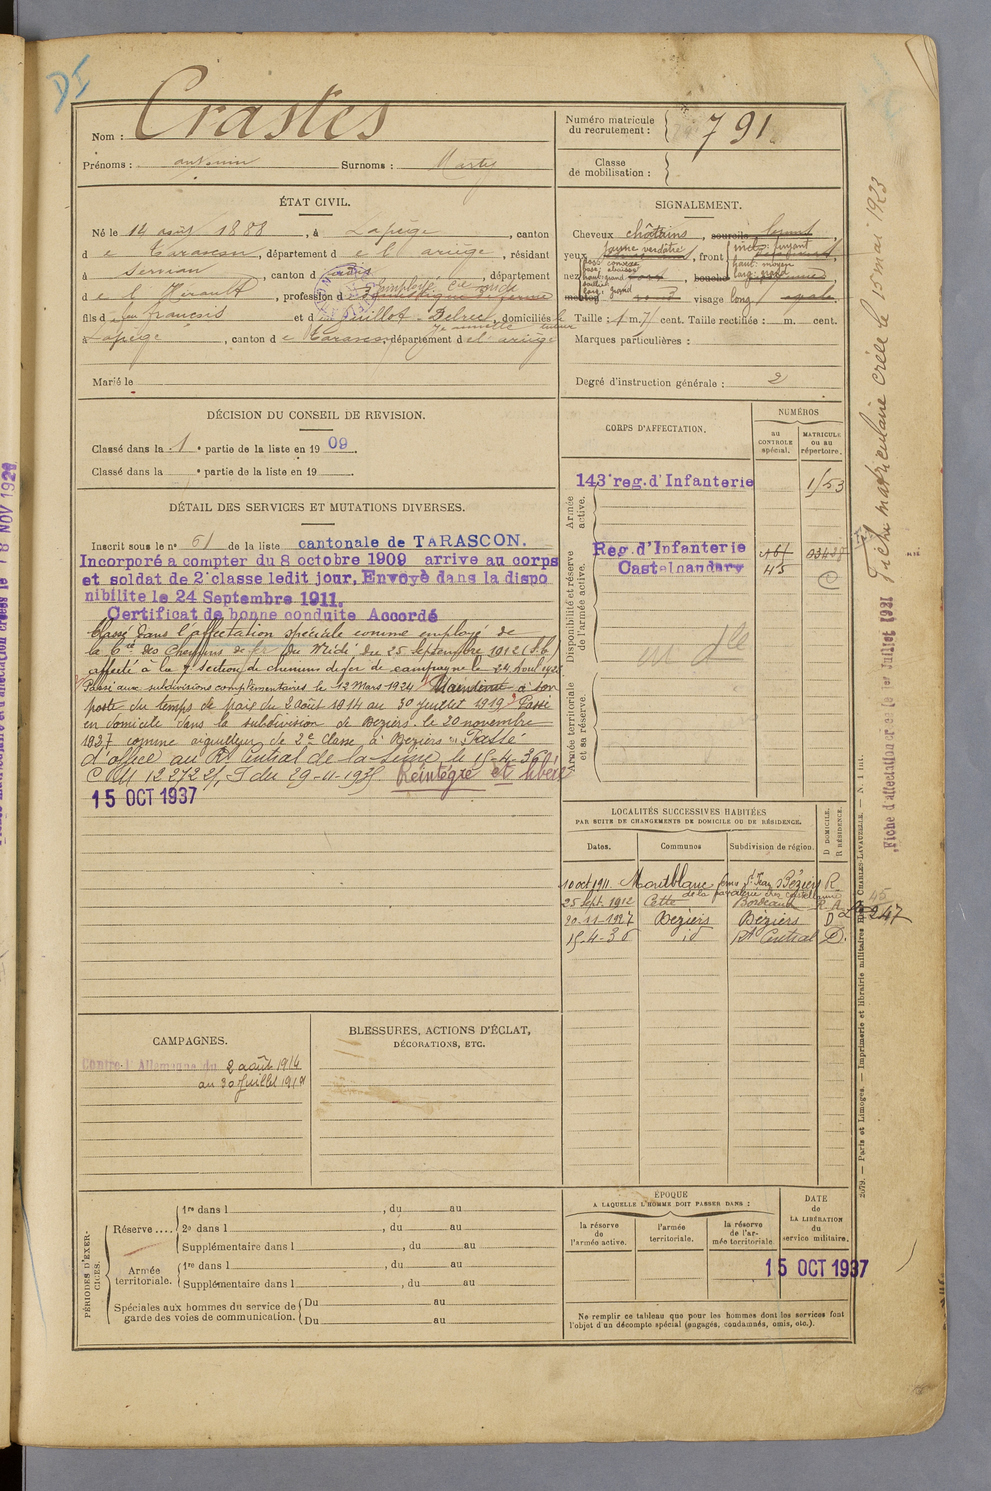 DI
Nom : Crastes
Prénoms : antonin Surnoms : Marty
Numéro matricule du recrutement : 791
Classe de mobilisation :
ÉTAT CIVIL.
Né le 14 août 1888, à Lapège, canton
de Tarascon, département de l'ariège, résidant
à Servian, canton d, département
de l'Hérault, profession d employé Cie midi
fils d feu francois et d Guillot Delrec, domiciliés
à Lapège, canton de Tarascon, département de l'ariège
Marié le
SIGNALEMENT.
Cheveux châtains, sourcils
yeux jaune verdâtre, front incl: fuyant
haut: moyen
larg: grand
nez dos: convexe
base: abaissée
haut: grand
saillie
larg: grand
bouche
menton rond visage long
Taille : 1 m. 7 cent. Taille rectifiée : m. cent.
Marques particulières :
Degré d'instruction générale : 2
DÉCISION DU CONSEIL DE REVISION.
Classé dans la 1e partie de la liste en 1909.
Classé dans la e partie de la liste en 19
DÉTAIL DES SERVICES ET MUTATIONS DIVERSES.
Inscrit sous le no 61 de la liste cantonale de TARASCON.
Incorporé a compter du 8 octobre 1909 arrive au corps
et soldat de 2e classe ledit jour, Envoyé dans la dispo
nibilité le 24 Septembre 1911.
Certificat de bonne conduite Accordé
Classé dans l'affectation spéciale comme employé de
la Cie des Chemins de fer du Midi du 25 septembre 1912
affecté à la section de chemins de fer de campagne le 24
Passé aux subdivisions complémentaires le 12 Mars 1924 Maintenu à son
poste du temps de paix du 2 août 1914 au 30 juillet 1919 Passé
en domicile dans la subdivision de Béziers le 20 novembre
1937 comme aiguilleur de 2e classe à Béziers Passé
d'office au Rt Central de la Seine le 15-4-36
CM 12272 2/1 du 29-11-1935 Réintégré et libéré
15 OCT 1937
CORPS D'AFFECTATION.
NUMÉROS
au CONTROLE spécial.
MATRICULE ou au répertoire.
Armée active.
143e reg. d'Infanterie 1/53
Disponibilité et réserve de l'armée active.
Reg. d'Infanterie
Castelnaudary
Armée territoriale et sa réserve.
LOCALITÉS SUCCESSIVES HABITÉES
PAR SUITE DE CHANGEMENTS DE DOMICILE OU DE RÉSIDENCE.
Dates. Communes Subdivision de région. D DOMICILE. R RÉSIDENCE.
10 oct 1911 Montblanc Béziers R
25 sept. 1912 Cette Bordeaux R
20-11-1927 Béziers Béziers D
15-4-36 id Rt Central D.
247
CAMPAGNES.
Contre l'Allemagne du 2 août 1914
au 30 juillet 1919
BLESSURES, ACTIONS D'ÉCLAT,
DÉCORATIONS, ETC.
PÉRIODES D'EXERCICES.
Réserve ....
1re dans l, du au
2e dans l, du au
Supplémentaire dans l, du au
Armée territoriale.
1re dans l, du au
Supplémentaire dans l, du au
Spéciales aux hommes du service de garde des voies de communication.
Du au
Du au
ÉPOQUE
A LAQUELLE L'HOMME DOIT PASSER DANS :
la réserve de l'armée active.
l'armée territoriale.
la réserve de l'armée territoriale.
DATE de LA LIBÉRATION du service militaire.
15 OCT 1937
Ne remplir ce tableau que pour les hommes dont les services font
l'objet d'un décompte spécial (engagés, condamnés, omis, etc.).
Fiche matriculaire créée le 15 mai 1923
Fiche d'affectation créée le 1er Juillet 1931
2079. — Paris et Limoges. — Imprimerie et librairie militaires Henri CHARLES-LAVAUZELLE. — N. 1 int.
18 NOV 1920